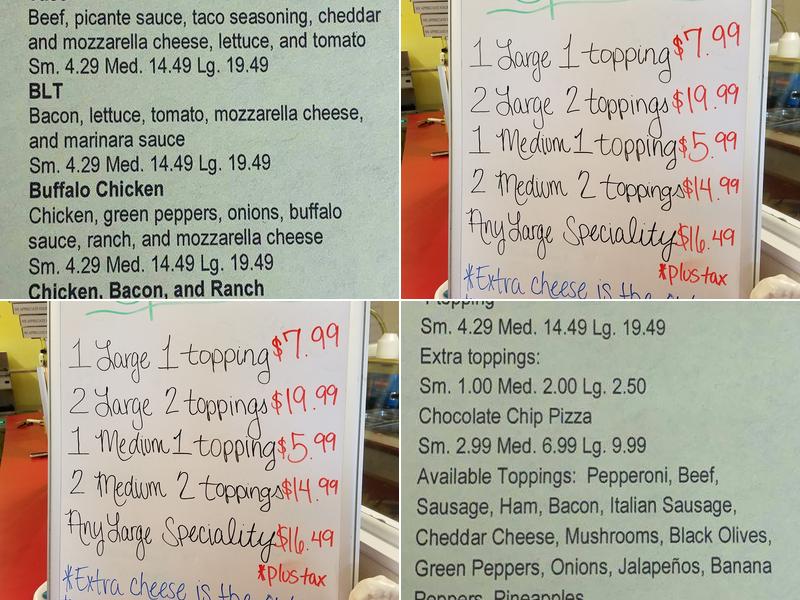 Beef, picante sauce, taco seasoning, cheddar
and mozzarella cheese, lettuce, and tomato
Sm. 4.29 Med. 14.49 Lg. 19.49
BLT
Bacon, lettuce, tomato, mozzarella cheese,
and marinara sauce
Sm. 4.29 Med. 14.49 Lg. 19.49
Buffalo Chicken
Chicken, green peppers, onions, buffalo
sauce, ranch, and mozzarella cheese
Sm. 4.29 Med. 14.49 Lg. 19.49
Chicken, Bacon, and Ranch
1 Large 1 topping $7.99
2 Large 2 toppings $19.99
1 Medium 1 topping $5.99
2 Medium 2 toppings $14.99
Any Large Speciality $16.49
*Plus tax
*Extra cheese is the
1 Large 1 topping $7.99
2 Large 2 toppings $19.99
1 Medium 1 topping $5.99
2 Medium 2 toppings $14.99
Any Large Speciality $16.49
*Plus tax
*Extra cheese is the
1 topping
Sm. 4.29 Med. 14.49 Lg. 19.49
Extra toppings:
Sm. 1.00 Med. 2.00 Lg. 2.50
Chocolate Chip Pizza
Sm. 2.99 Med. 6.99 Lg. 9.99
Available Toppings: Pepperoni, Beef,
Sausage, Ham, Bacon, Italian Sausage,
Cheddar Cheese, Mushrooms, Black Olives,
Green Peppers, Onions, Jalapeños, Banana
Peppers, Pineapples